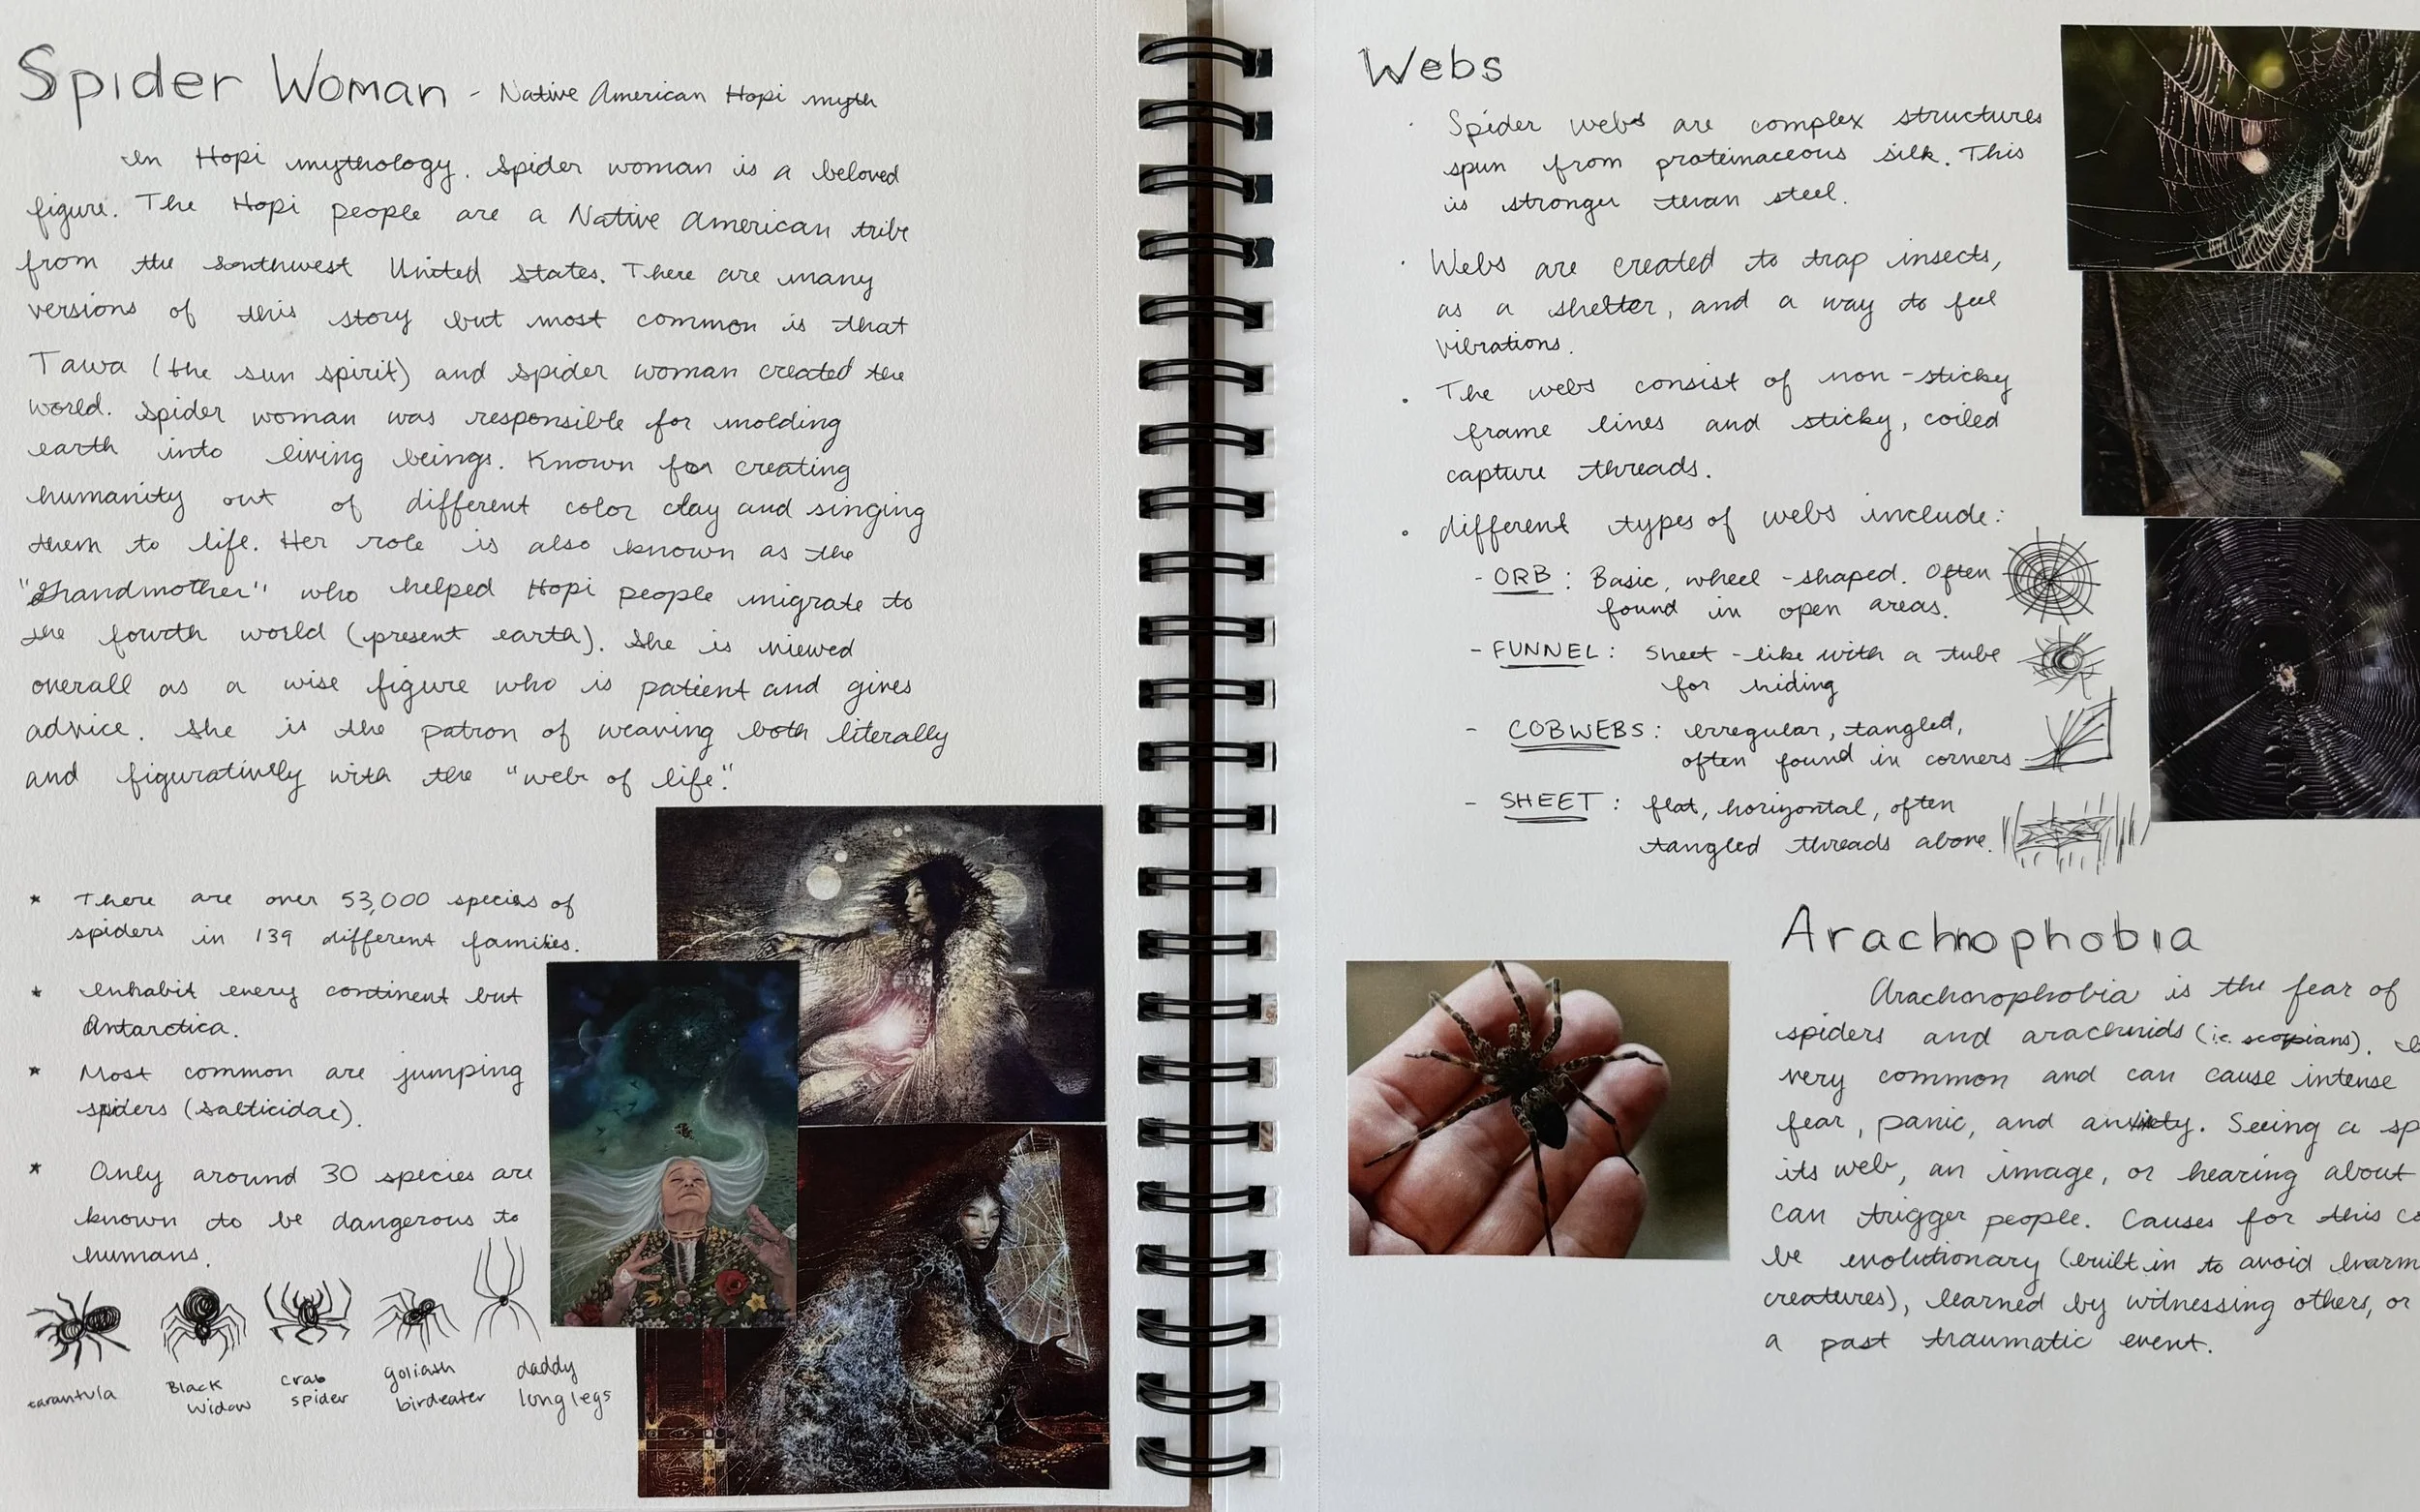 Spider Woman - Native American Hopi myth
In Hopi mythology. Spider woman is a beloved
figure. The Hopi people are a Native American tribe
from the southwest United States. There are many
versions of this story but most common is that
Tawa (the sun spirit) and spider woman created the
world. Spider woman was responsible for molding
earth into living beings. Known for creating
humanity out of different color clay and singing
them to life. Her role is also known as the
"Grandmother" who helped Hopi people migrate to
the fourth world (present earth). She is viewed
overall as a wise figure who is patient and gives
advice. She is the patron of weaving both literally
and figuratively with the "web of life".
* There are over 53,000 species of
spiders in 139 different families.
* Inhabit every continent but
Antarctica.
* Most common are jumping
spiders (Salticidae).
* Only around 30 species are
known to be dangerous to
humans.
tarantula
Black
Widow
crab
spider
goliath
birdeater
daddy
long legs
Webs
· Spider webs are complex structures
spun from proteinaceous silk. This
is stronger than steel.
· Webs are created to trap insects,
as a shelter, and a way to feel
vibrations.
· The webs consist of non-sticky
frame lines and sticky, coiled
capture threads.
· different types of webs include:
- ORB: Basic, wheel-shaped. Often
found in open areas.
- FUNNEL: Sheet-like with a tube
for hiding
- COBWEBS: irregular, tangled,
often found in corners
- SHEET: flat, horizontal, often
tangled threads above.
Arachnophobia
Arachnophobia is the fear of
spiders and arachnids (i.e. scopians).
very common and can cause intense
fear, panic, and anxiety. Seeing a sp
its web, an image, or hearing about
can trigger people. Causes for this c
be evolutionary (built in to avoid harm
creatures), learned by witnessing others, or
a past traumatic event.